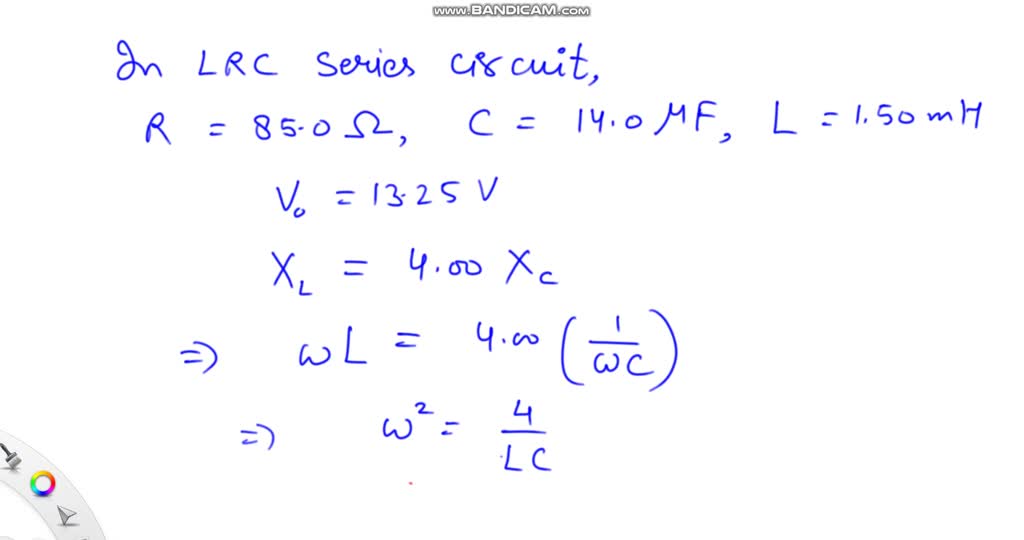 www.BANDICAM.com
In LRC series circuit,
R = 85.0 Ω, C = 14.0 μF, L = 1.50 mH
V₀ = 13.25 V
X_L = 4.00 X_C
=) ωL = 4.00 (1/ωC)
=) ω² = 4/LC